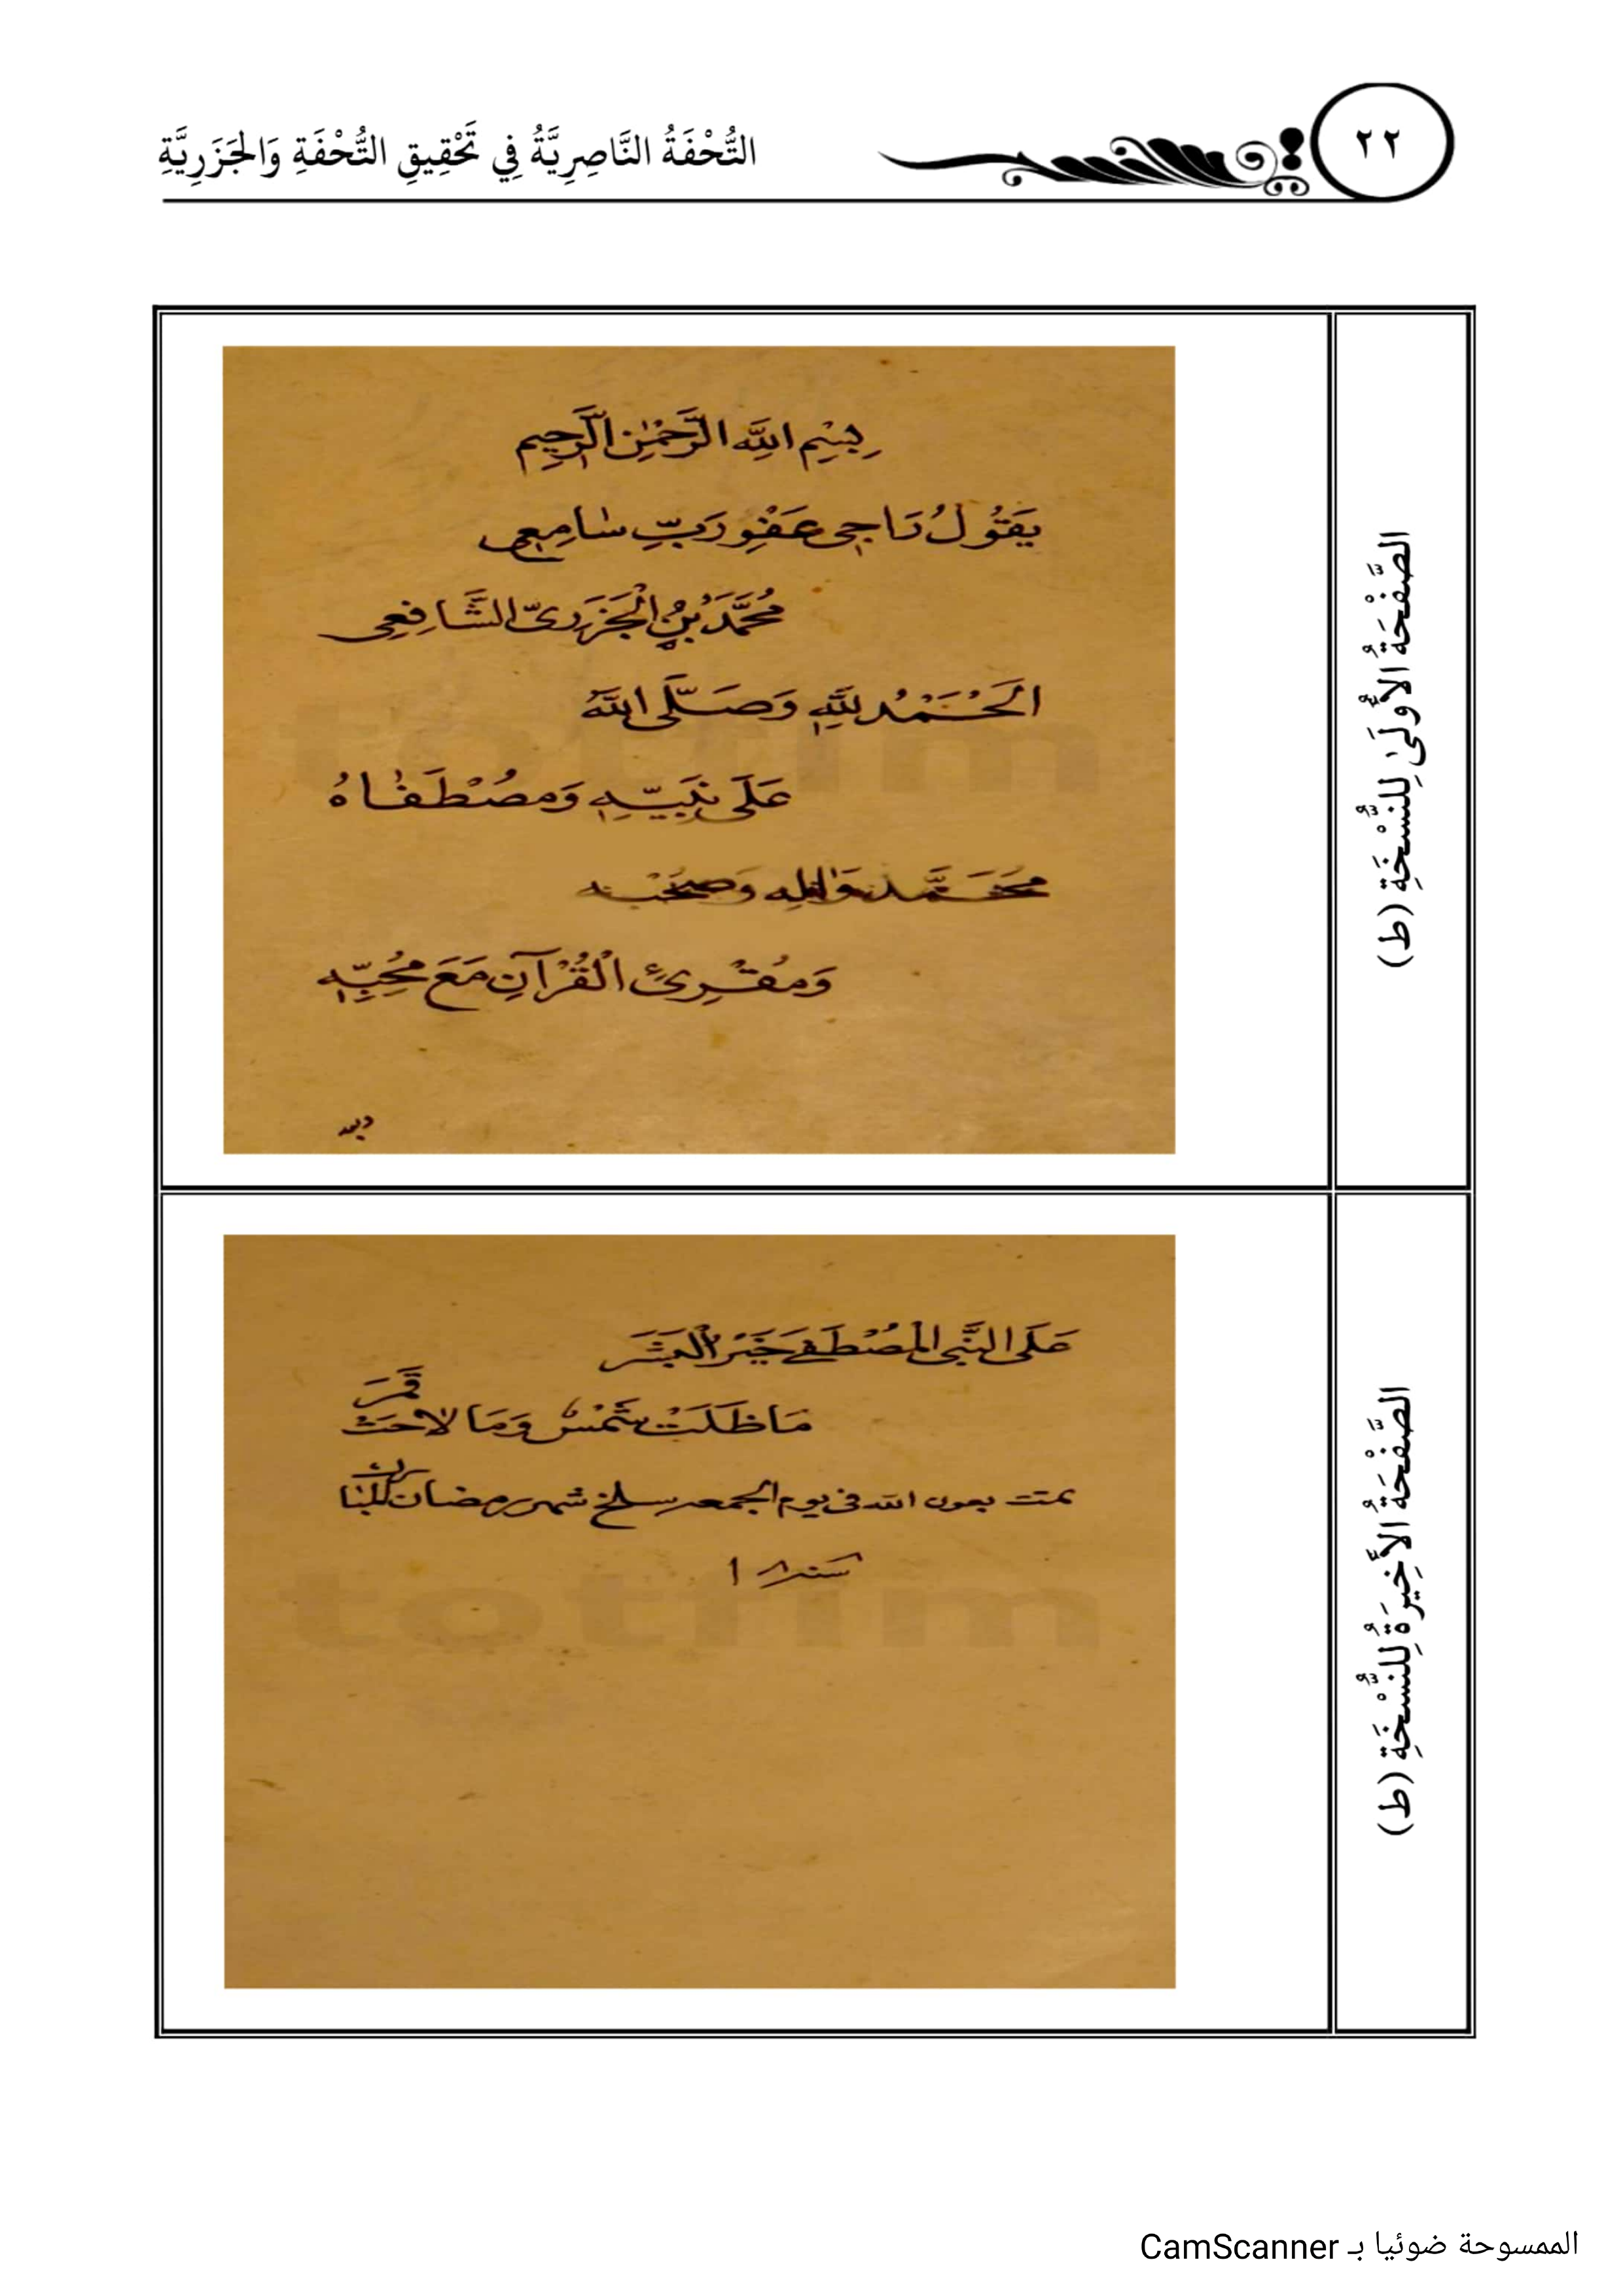 ٢٢
التُّحْفَةُ النَّاصِرِيَّةُ فِي تَحْقِيقِ التُّحْفَةِ وَالجَزَرِيَّةِ
الصَّفْحَةُ الأُولَىٰ لِلنُّسْخَةِ (ط)
بِسْمِ اللَّهِ الرَّحْمٰنِ الرَّحِيمِ
يَقُولُ رَاجِى عَفْوِ رَبٍّ سَامِعِى
مُحَمَّدُ بْنُ الْجَزَرِىّ الشَّافِعِى
اَلْحَمْدُ لِلَّهِ وَصَلَّى اللَّهُ
عَلَى نَبِيِّهِ وَمُصْطَفَاهُ
مُحَمَّدٍ وَاٰلِهِ وَصَحْبِهِ
وَمُقْرِئِ الْقُرْآنِ مَعَ مُحِبِّهِ
totfim
الصَّفْحَةُ الأَخِيرَةُ لِلنُّسْخَةِ (ط)
عَلَى النَّبِى الْمُصْطَفَى خَيْرِ الْبَشَرِ
مَا ظَلَتْ شَمْسٌ وَمَا لَاحَتْ قَمَرَ
تمت بعون الله فى يوم الجمعه سلخ شهر رمضان
سنه
totfim
الممسوحة ضوئيا بـ CamScanner